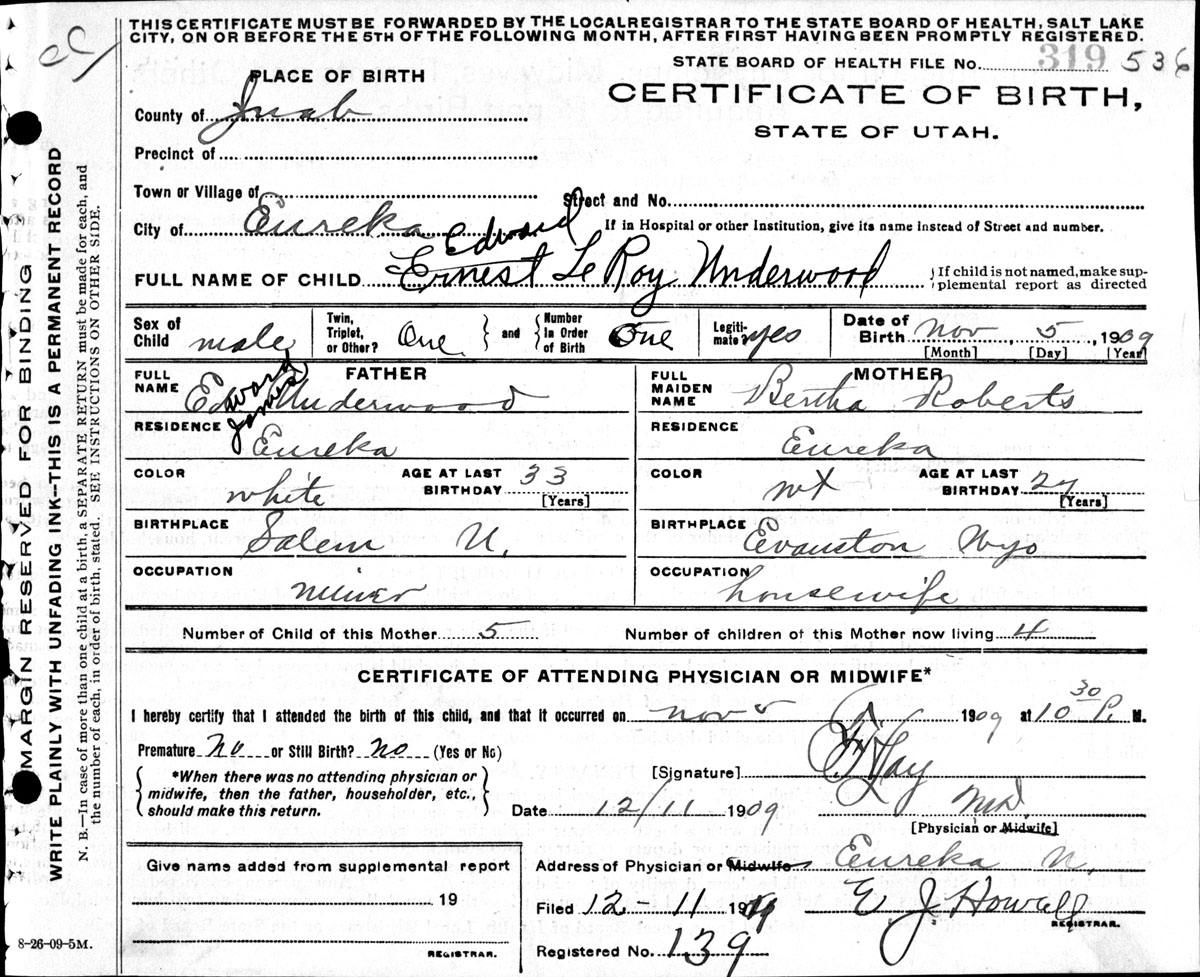 THIS CERTIFICATE MUST BE FORWARDED BY THE LOCAL REGISTRAR TO THE STATE BOARD OF HEALTH, SALT LAKE
CITY, ON OR BEFORE THE 5TH OF THE FOLLOWING MONTH, AFTER FIRST HAVING BEEN PROMPTLY REGISTERED.
STATE BOARD OF HEALTH FILE NO. 319 536
PLACE OF BIRTH
CERTIFICATE OF BIRTH,
County of Juab
STATE OF UTAH.
Precinct of
Town or Village of
Street and No.
City of Eureka
If in Hospital or other Institution, give its name instead of Street and number.
Edward
FULL NAME OF CHILD Ernest Le Roy Underwood
If child is not named, make sup-
plemental report as directed
Sex of Child male
Twin, Triplet, or Other? One and Number In Order of Birth One
Legiti-mate? yes
Date of Birth Nov 5 1909
[Month] [Day] [Year]
FATHER
FULL NAME Edward James Underwood
RESIDENCE Eureka
COLOR white
AGE AT LAST BIRTHDAY 33
[Years]
BIRTHPLACE Salem U.
OCCUPATION miner
MOTHER
FULL MAIDEN NAME Bertha Roberts
RESIDENCE Eureka
COLOR
AGE AT LAST BIRTHDAY 27
[Years]
BIRTHPLACE Evanston Wyo
OCCUPATION housewife
Number of Child of this Mother 5
Number of children of this Mother now living 4
CERTIFICATE OF ATTENDING PHYSICIAN OR MIDWIFE*
I hereby certify that I attended the birth of this child, and that it occurred on Nov 1909 at 10 30 P. M.
Premature No or Still Birth? No (Yes or No)
*When there was no attending physician or
midwife, then the father, householder, etc.,
should make this return.
[Signature]
Date 12/11 1909
[Physician or Midwife]
Give name added from supplemental report
19
REGISTRAR.
Address of Physician or Midwife Eureka U.
Filed 12 - 11 19
E J Howell
REGISTRAR.
Registered No. 139
8-26-09-5M.
MARGIN RESERVED FOR BINDING
WRITE PLAINLY WITH UNFADING INK--THIS IS A PERMANENT RECORD
N. B.—In case of more than one child at a birth, a SEPARATE RETURN must be made for each, and
the number of each, in order of birth, stated. SEE INSTRUCTIONS ON OTHER SIDE.